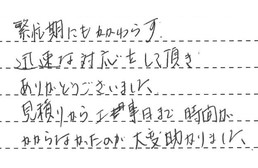 繁忙期にもかかわらず
迅速な対応をして頂き
ありがとうございました。
見積りから工事日まで時間が
かからなかったのが大変助かりました。